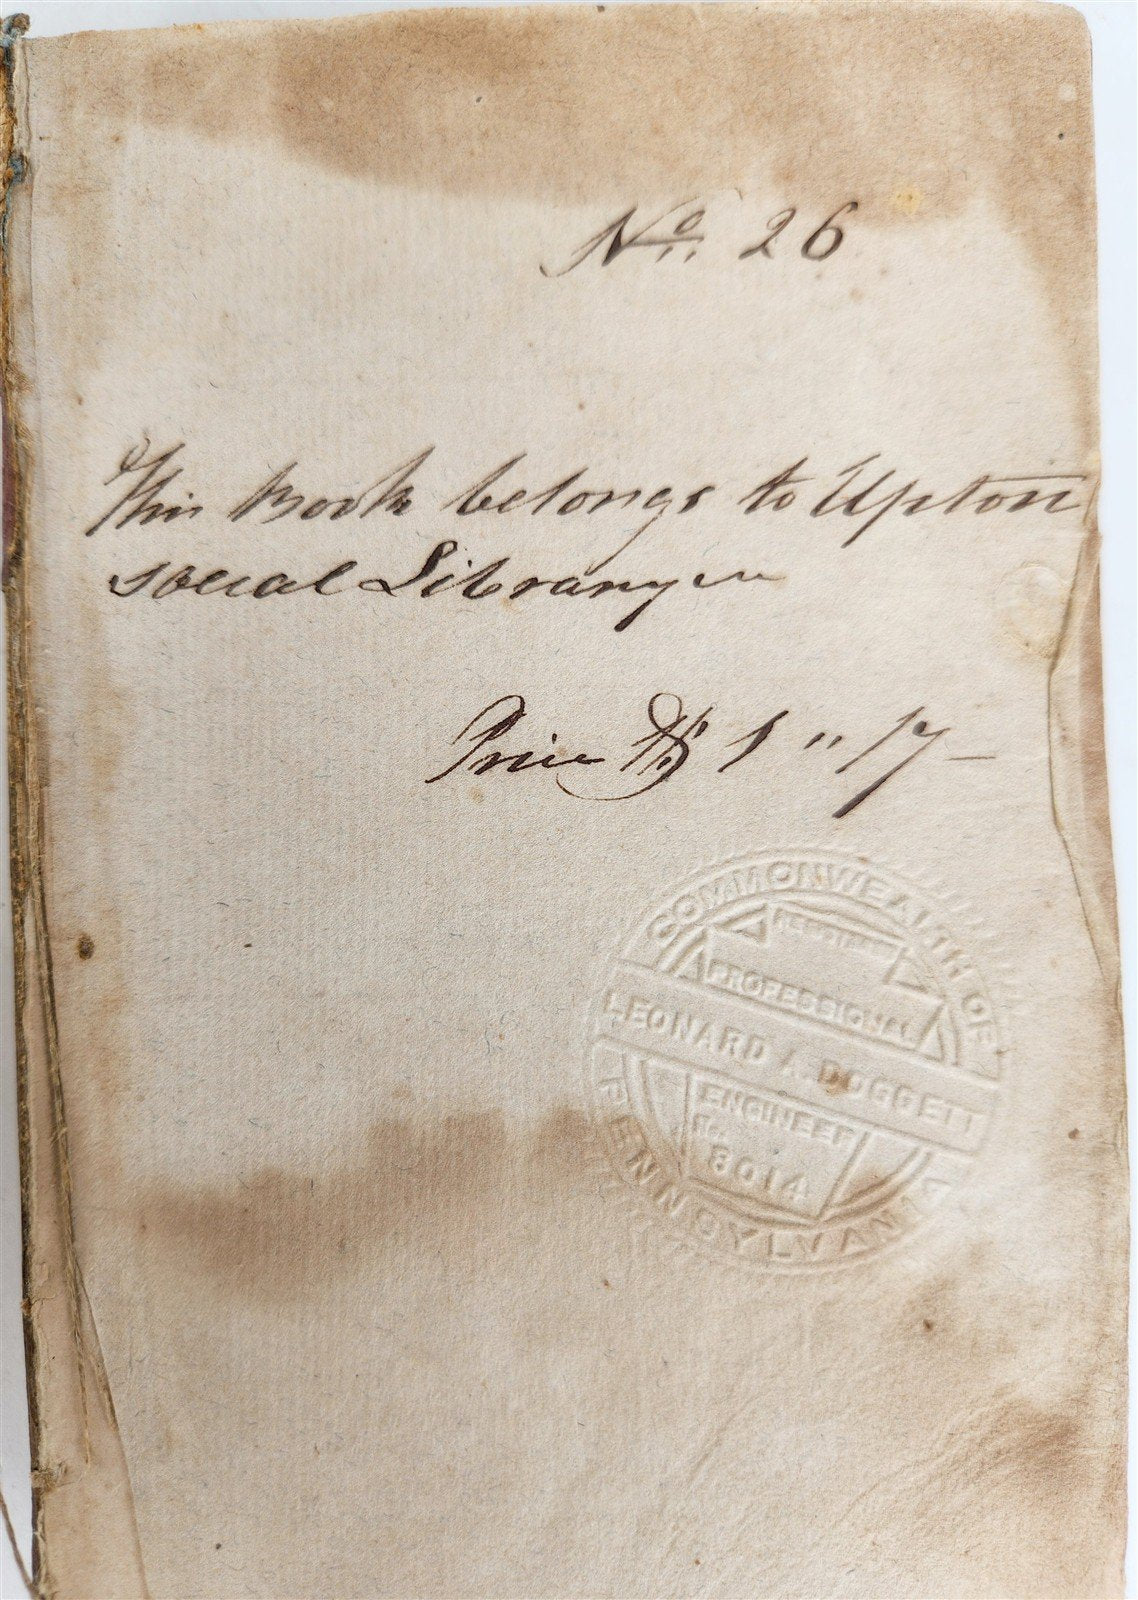 No. 26
This Book belongs to Upton
social Library
Price $ 1 " 17 –
COMMONWEALTH OF
REGISTERED
PROFESSIONAL
LEONARD A. DOGGETT
ENGINEER
No.
8014
PENNSYLVANIA